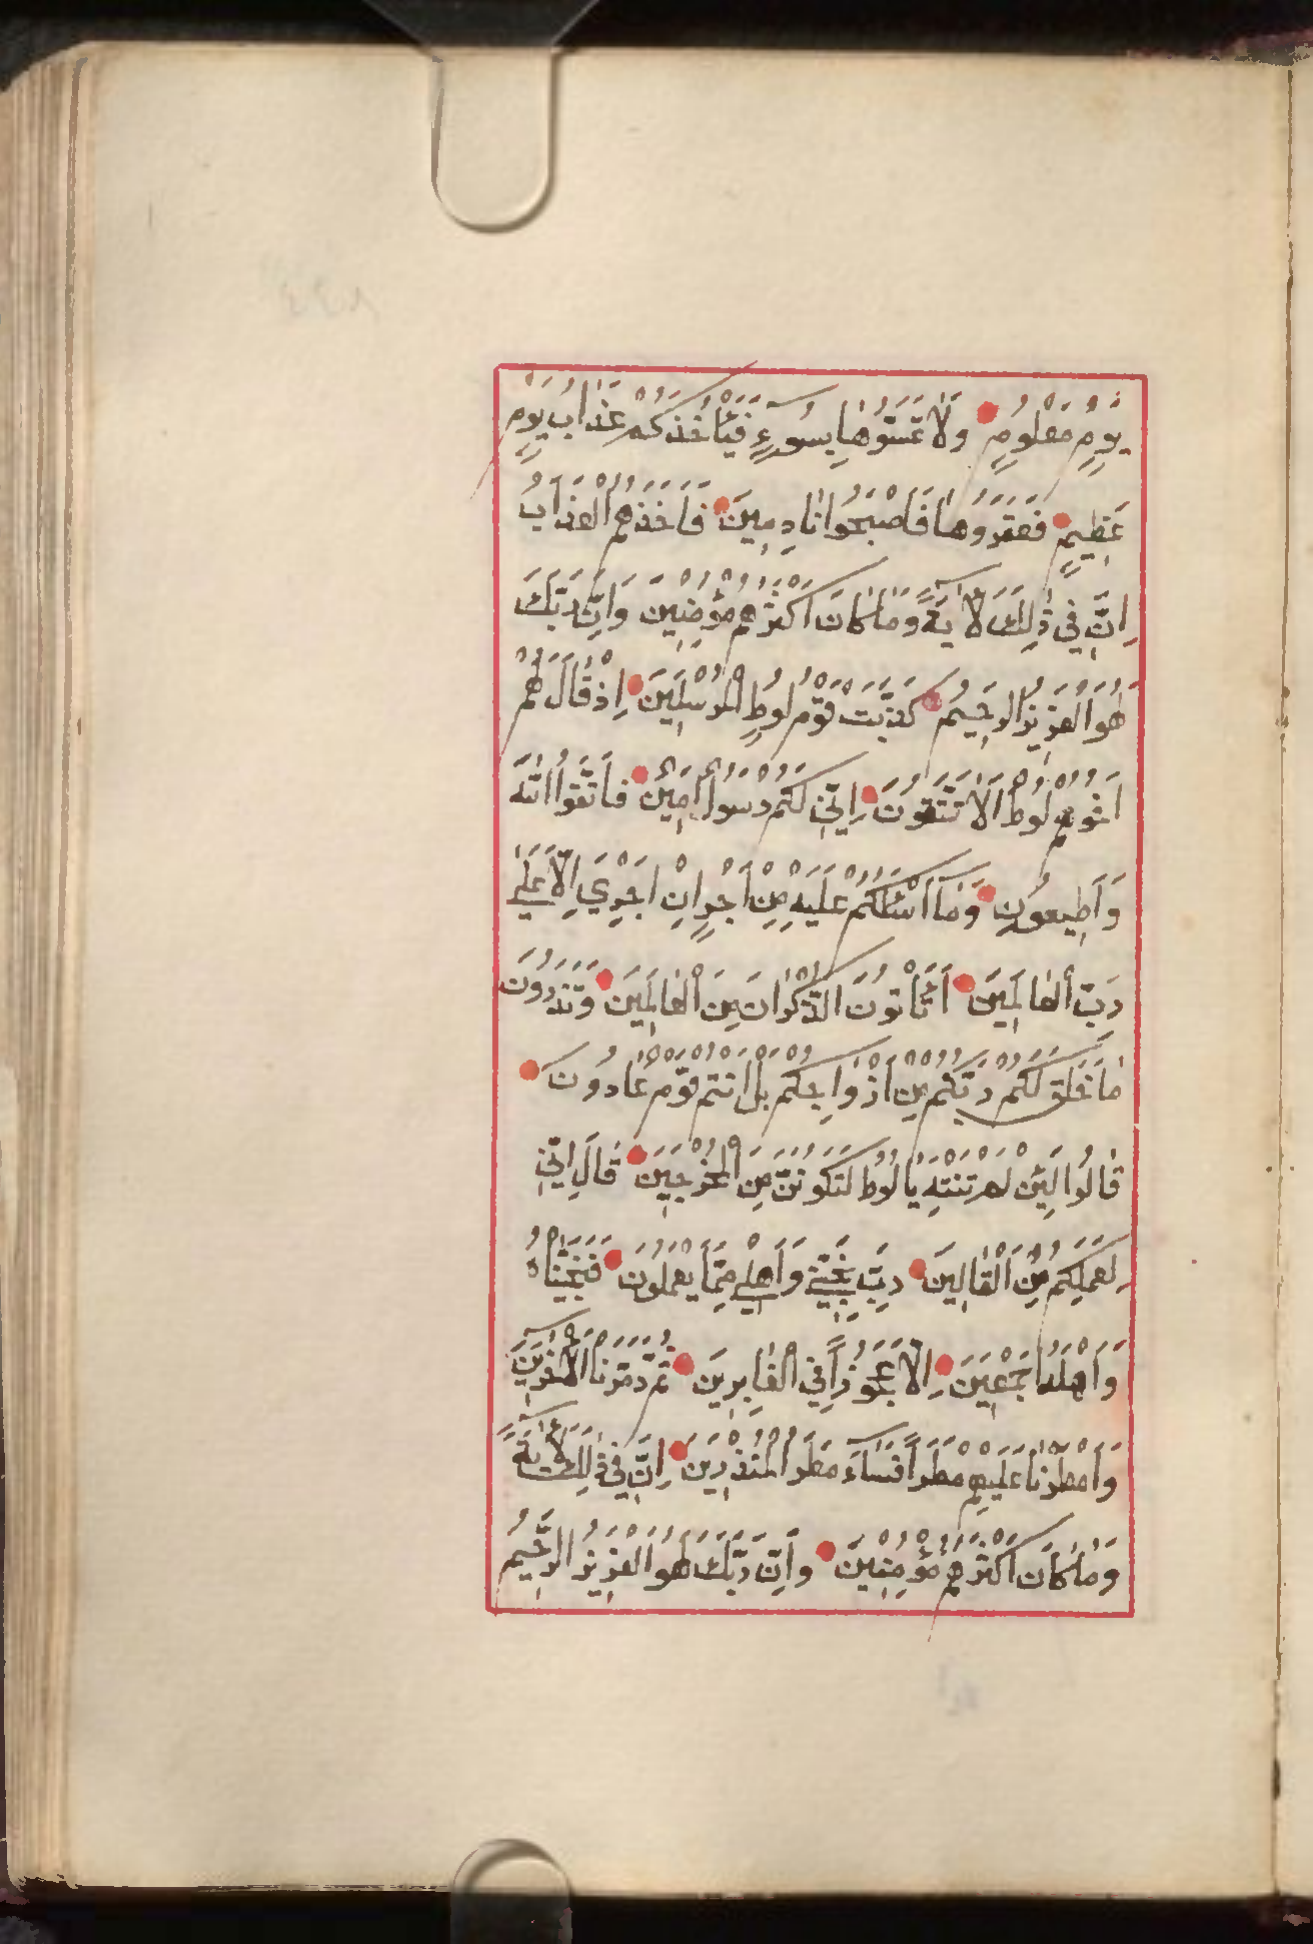 يَوْمٍ مَعْلُومٍ وَلَا تَمَسُّوهَا بِسُوءٍ فَيَأْخُذَكُمْ عَذَابُ يَوْمٍ
عَظِيمٍ فَعَقَرُوهَا فَأَصْبَحُوا نَادِمِينَ فَأَخَذَهُمُ الْعَذَابُ
اِنَّ فِي ذٰلِكَ لَاٰيَةً وَمَا كَانَ اَكْثَرُهُمْ مُؤْمِنِينَ وَاِنَّ رَبَّكَ
لَهُوَ الْعَزِيزُ الرَّحِيمُ كَذَّبَتْ قَوْمُ لُوطٍ الْمُرْسَلِينَ اِذْ قَالَ لَهُمْ
اَخُوهُمْ لُوطٌ اَلَا تَتَّقُونَ اِنِّي لَكُمْ رَسُولٌ اَمِينٌ فَاتَّقُوا اللّٰهَ
وَاَطِيعُونِ وَمَا اَسْئَلُكُمْ عَلَيْهِ مِنْ اَجْرٍ اِنْ اَجْرِيَ اِلَّا عَلٰى
رَبِّ الْعَالَمِينَ اَتَأْتُونَ الذُّكْرَانَ مِنَ الْعَالَمِينَ وَتَذَرُونَ
مَا خَلَقَ لَكُمْ رَبُّكُمْ مِنْ اَزْوَاجِكُمْ بَلْ اَنْتُمْ قَوْمٌ عَادُونَ
قَالُوا لَئِنْ لَمْ تَنْتَهِ يَا لُوطُ لَتَكُونَنَّ مِنَ الْمُخْرَجِينَ قَالَ اِنِّي
لِعَمَلِكُمْ مِنَ الْقَالِينَ رَبِّ نَجِّنِي وَاَهْلِي مِمَّا يَعْمَلُونَ فَنَجَّيْنَاهُ
وَاَهْلَهُ اَجْمَعِينَ اِلَّا عَجُوزًا فِي الْغَابِرِينَ ثُمَّ دَمَّرْنَا الْاٰخَرِينَ
وَاَمْطَرْنَا عَلَيْهِمْ مَطَرًا فَسَاءَ مَطَرُ الْمُنْذَرِينَ اِنَّ فِي ذٰلِكَ لَاٰيَةً
وَمَا كَانَ اَكْثَرُهُمْ مُؤْمِنِينَ وَاِنَّ رَبَّكَ لَهُوَ الْعَزِيزُ الرَّحِيمُ